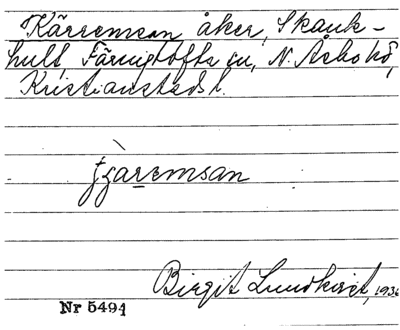 Kärremsan åker, Skånk-
hult, Färingtofta sn, N. Åsbo hd,
Kristianstads l.
tjàremsan
Birgit Lundkvist, 1936
Nr 5491